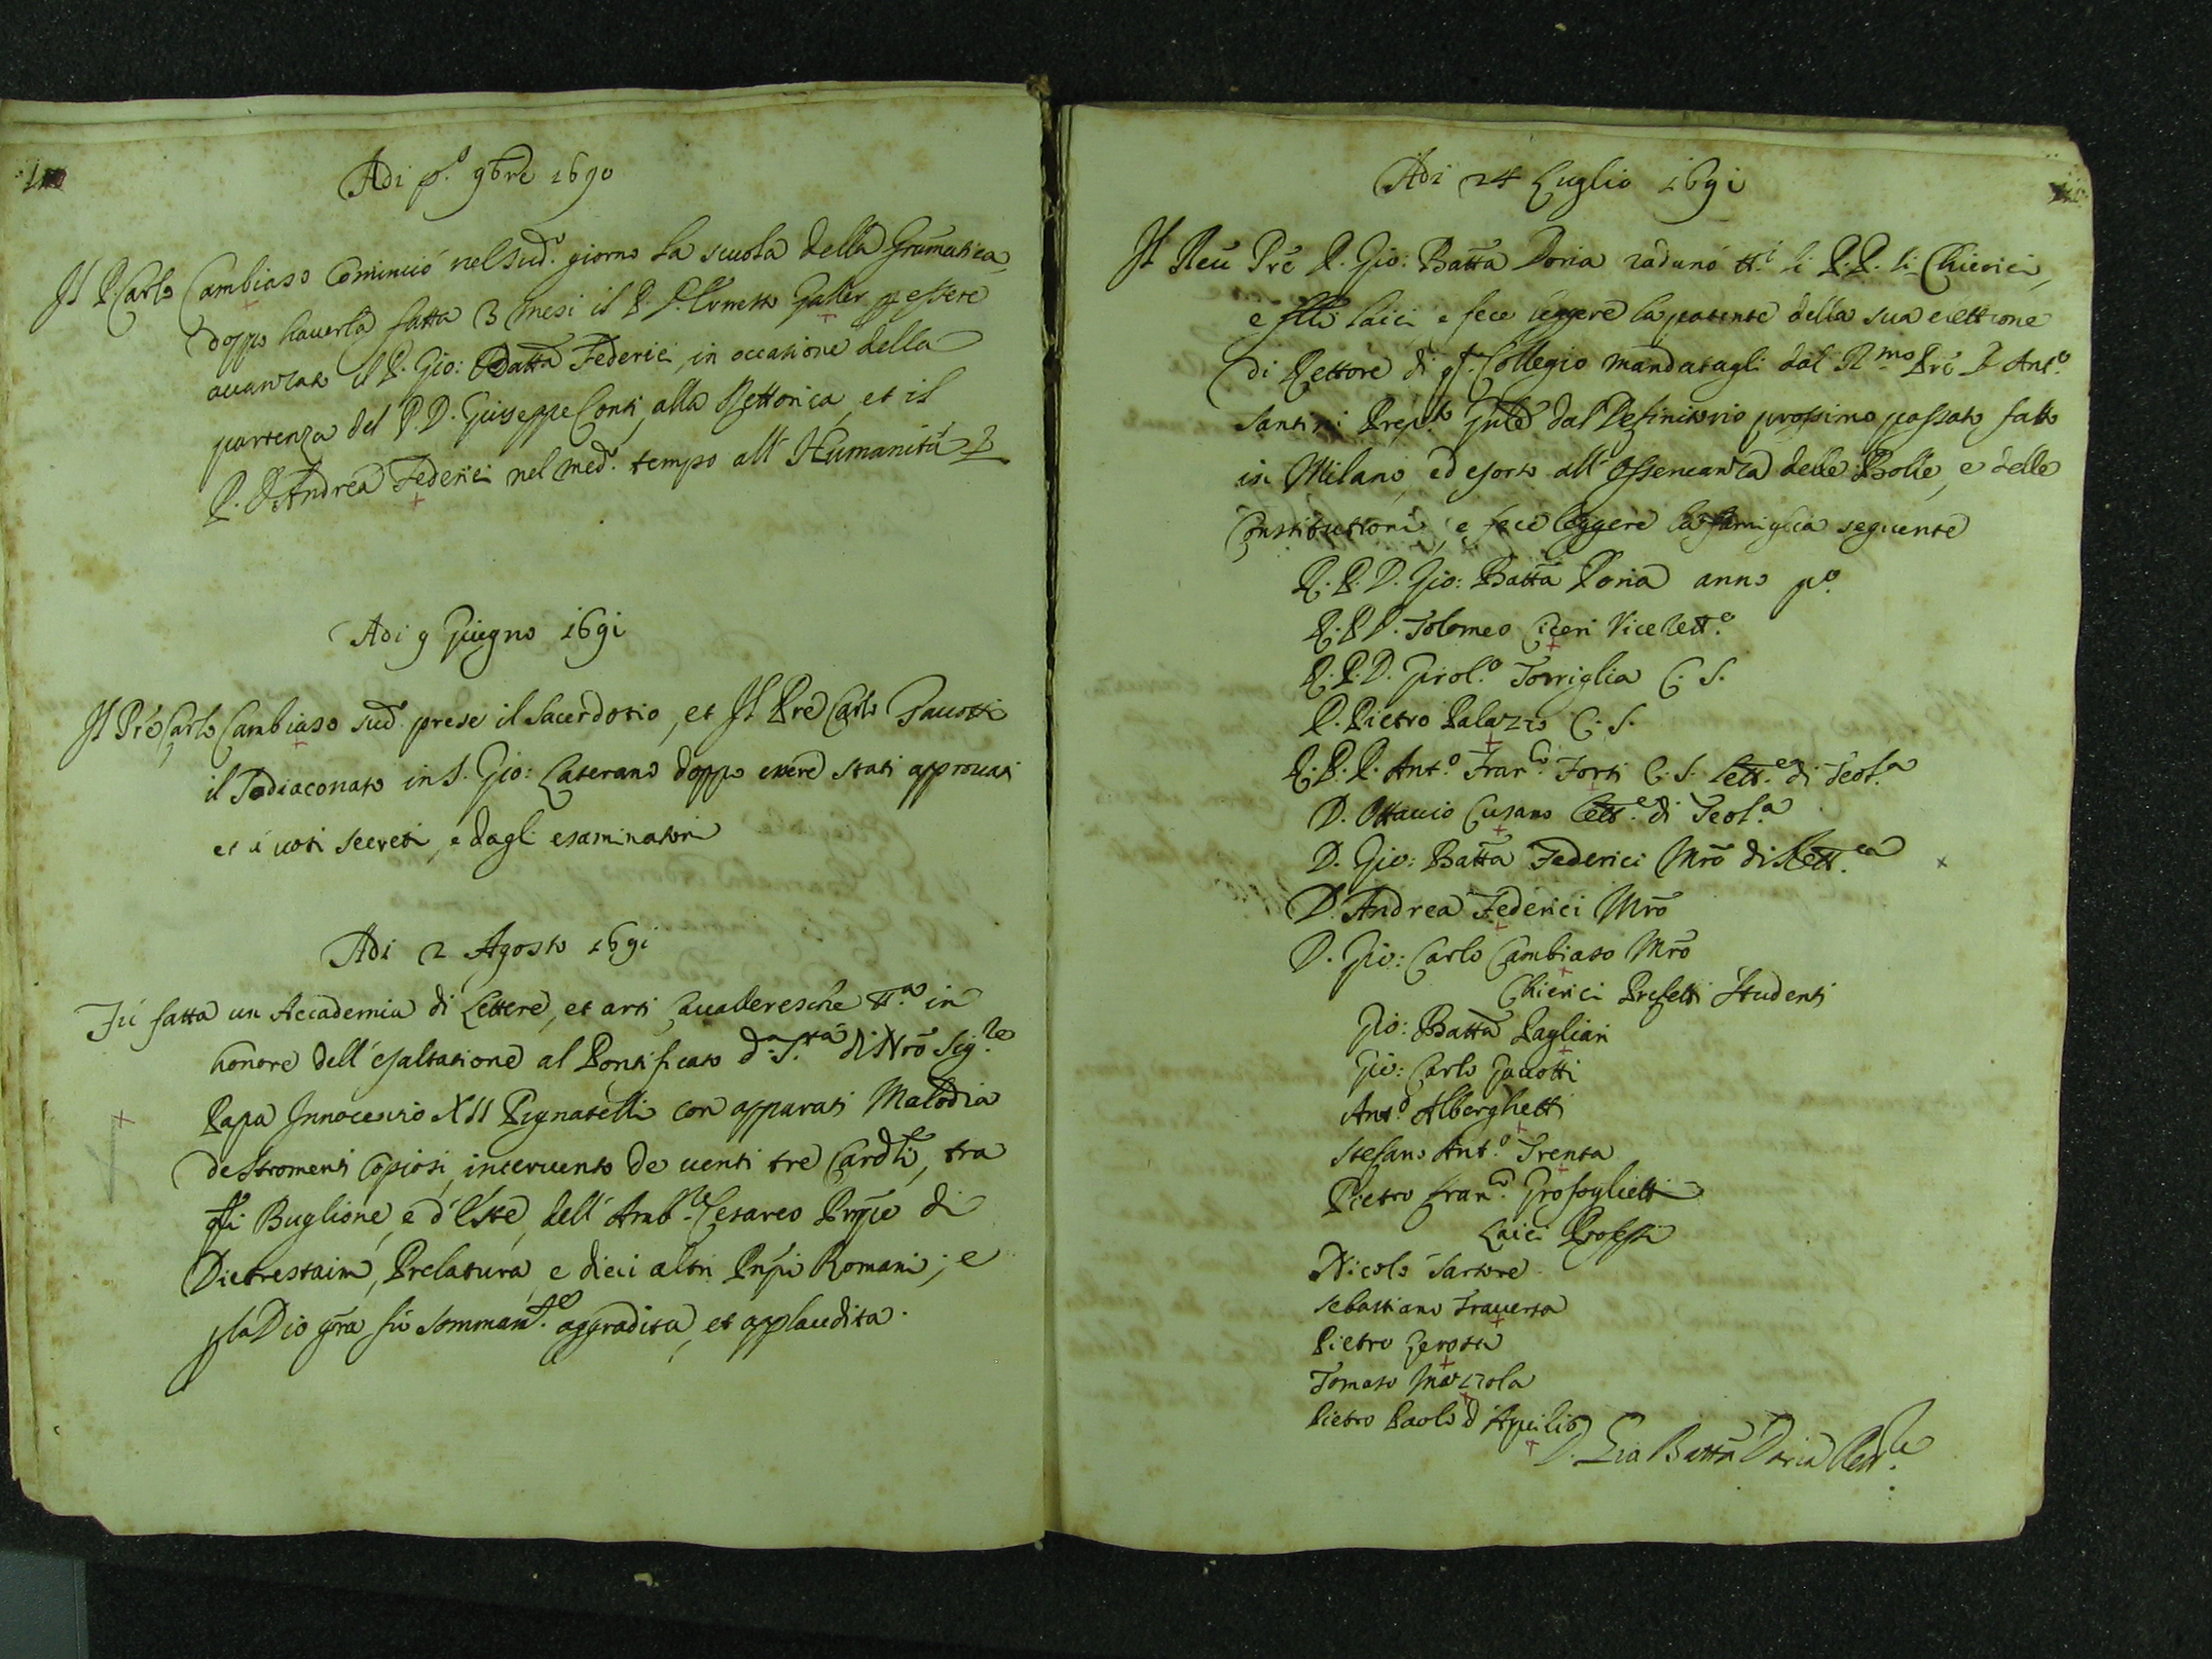 Adi p.o 9bre 1690
Il P Carlo Cambiaso Cominciò nel sud.o giorno la scuola della Gramatica,
doppo hauerla fatta 3 mesi il P. D. Ernesto Galler p essere
auanzato il P. Gio: Batta Federici, in occasione della
partenza del P. D. Giuseppe Conti, alla Rettorica, et il
P. D. Andrea Federici nel med.o tempo all'Humanità
Adi 9 Giugno 1691
Il Pre Carlo Cambiaso sud.o prese il Sacerdotio, et Il Pre Carlo Gauotti
il Sodiaconato in S. Gio: Laterano doppo essere stati approuati
et à uoti secreti, e dagli esaminatori
Adi 2 Agosto 1691
Fù fatta un Accademia di Lettere, et arti Caualeresche in
honore dell'esaltatione al Pontificato d.a S.tà di Nro Sig.re
Papa Innocenzo XII Pignatelli con apparati Malodia
de Stromenti Copiosi, interuento de uenti tre Cardli, tra
qli Buglione, e d'Este, dell'Amb.re Cesareo Prnpe di
Dietrestain, Prelatura, e dieci altri Prnpi Romani; e
p la Dio gra fù sommam.te aggradita, et applaudita.
Adi 24 Luglio 1691
Il Reu Pre D. Gio: Batta Doria radunò tt.i li P.P. li Chierici,
e flli laici e fece leggere la patente della sua elettione
di Rettore di q.to Collegio mandatagli dal R.mo Pre D Ant.o
Santini Prep.to Gnle dal Definitorio prossimo passato fatto
in Milano, ed esortò all'osseruanza delle Bolle, e delle
Constitutioni, e fece leggere la famiglia seguente
R. P. D. Gio: Batta Doria anno p.o
R. P. D. Tolomeo Ciceri Vice Rett.e
R. P. D. Girol.o Torriglia C. S.
D. Pietro Palazzo C. S.
R. P. D. Ant.o Fran.co Forti C. S. Lett.e di Teol.a
D. Ottauio Cusano Lett.e di Teol.a
D. Gio: Batta Federici Mro di Rett.ca
D. Andrea Federici Mro
D. Gio: Carlo Cambiaso Mro
Chierici Prefetti Studenti
Gio: Batta Pagliari
Gio: Carlo Gauotti
Ant.o Alberghetti
Stefano Ant.o Trenta
Pietro Fran.co Grosoglietti
Laici Professi
Nicolò Sartore
Sebastiano Trauersa
Pietro Zerosa
Tomaso Mazzola
Pietro Paolo d'Aquilio
D. Gio Batta Doria Rett.re